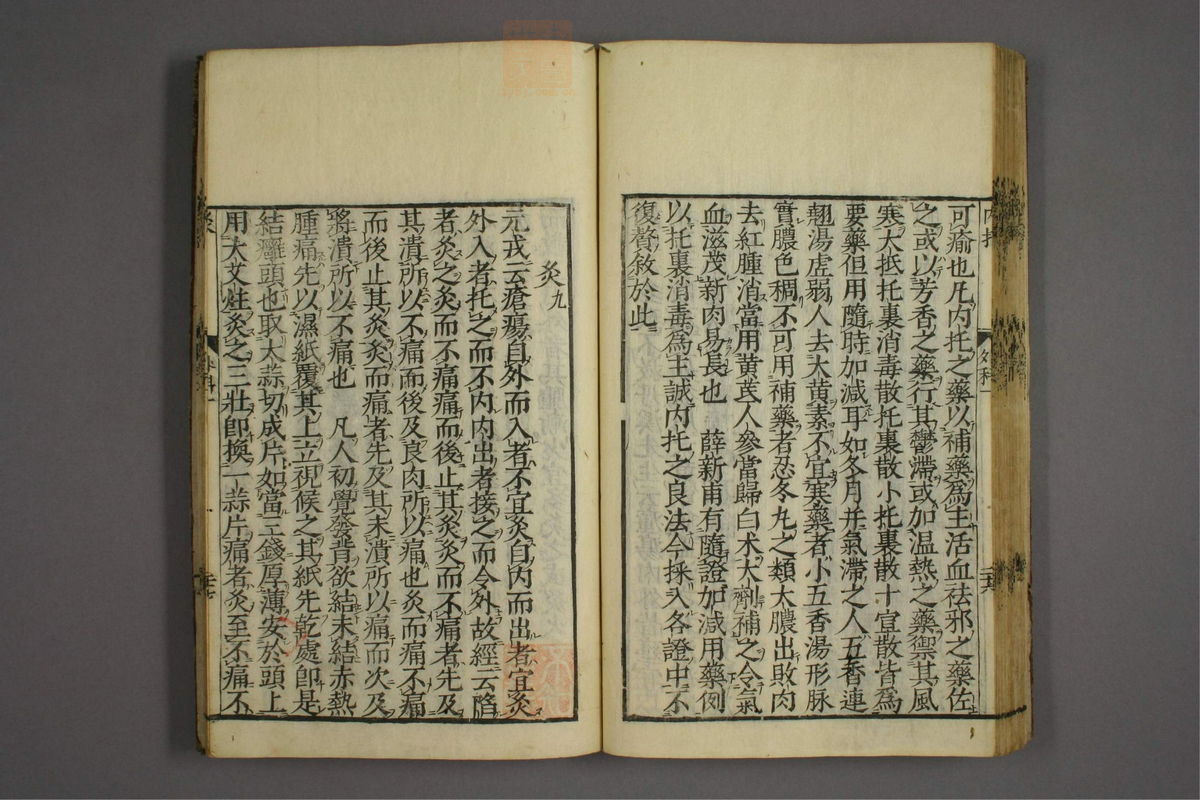 可瘉也凡内托之藥以補藥爲主活血祛邪之藥佐
之或以芳香之藥行其鬱滯或加温熱之藥禦其風
寒大抵托裏消毒散托裏散小托裏散十宣散皆爲
要藥但用隨時加減耳如冬月并氣滯之人五香連
翹湯虛弱人去大黄素不宜寒藥者小五香湯形脉
實膿色稠不可用補藥者忍冬丸之類太膿出敗肉
去紅腫消當用黄芪人參當歸白朮大劑補之令氣
血滋茂新肉易長也 薛新甫有隨證加減用藥例
以托裏消毒爲主誠内托之良法今採入各證中不
復贅敘於此
外科一
灸九
元戎云瘡瘍自外而入者不宜灸自内而出者宜灸
外入者托之而不内内出者接之而令外故經云陷
者灸之灸而不痛痛而後止其灸灸而不痛者先及
其潰所以不痛而後及良肉所以痛也灸而痛不痛
而後止其灸灸而痛者先及其未潰所以痛而次及
將潰所以不痛也 凡人初覺發背欲結未結赤熱
腫痛先以濕紙覆其上立視候之其紙先乾處卽是
結癰頭也取大蒜切成片如當三錢厚薄安於頭上
用大艾炷灸之三壯卽換一蒜片痛者灸至不痛不